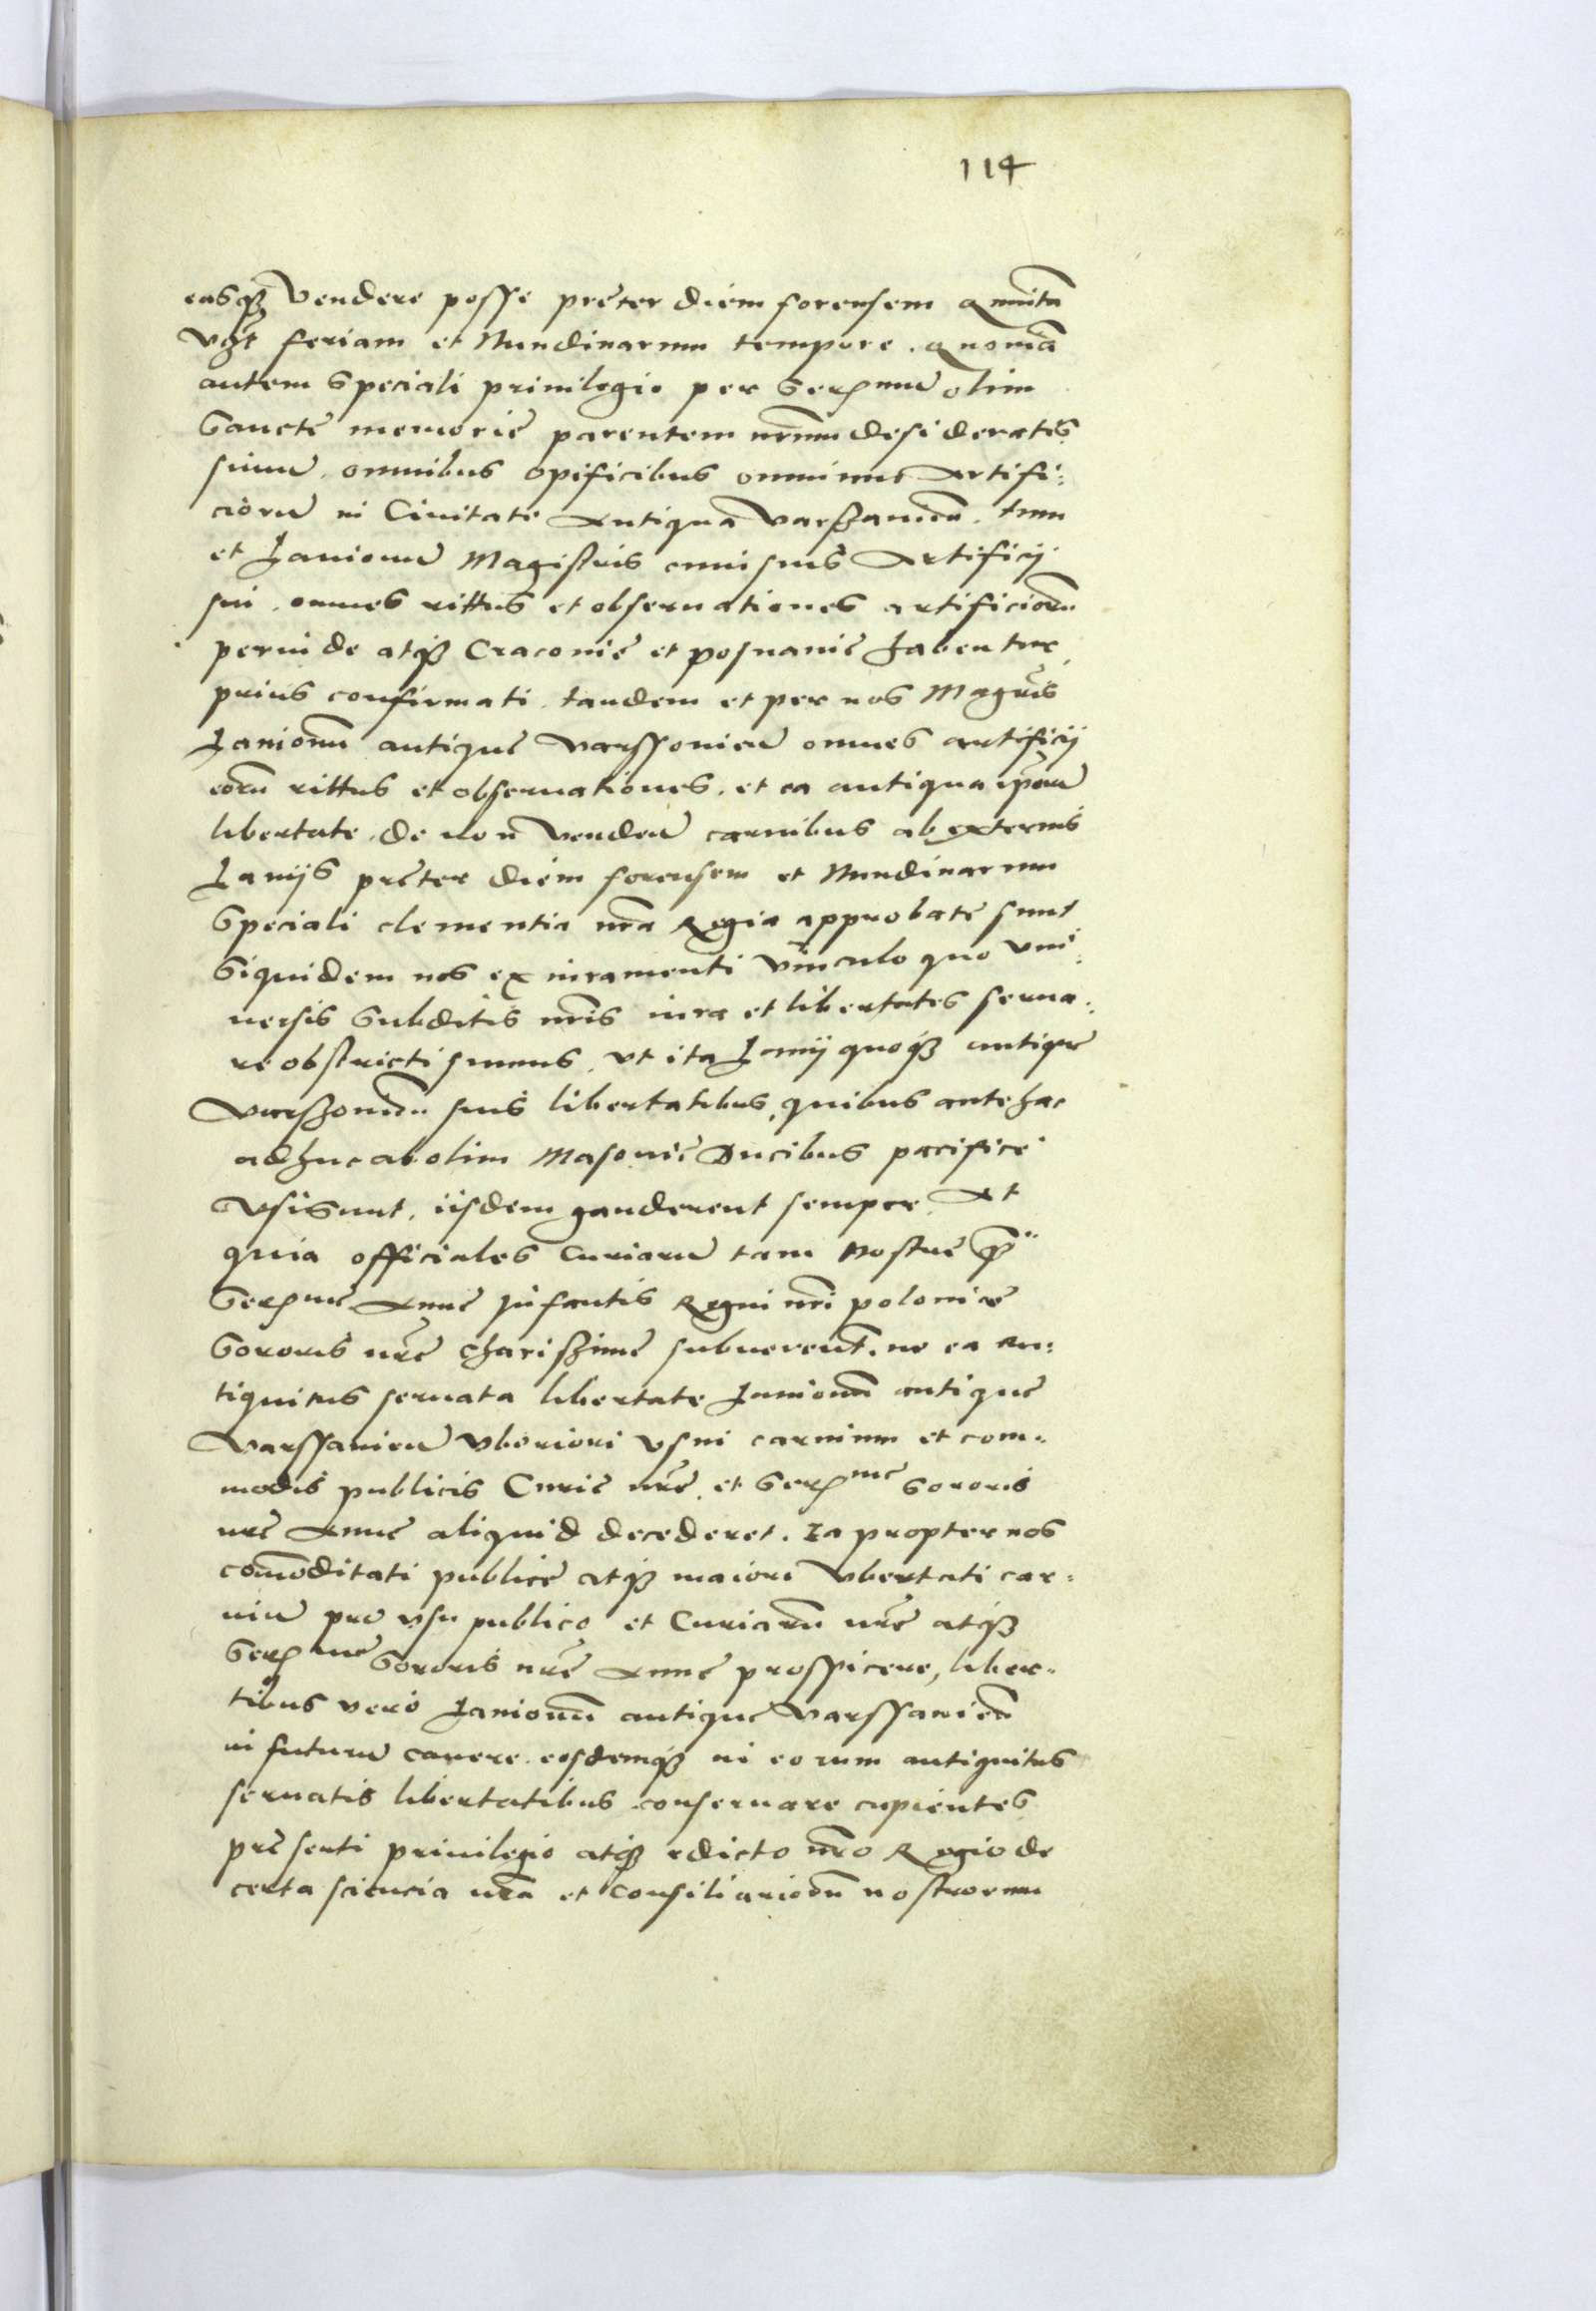 114
easq₃ vendere posse preter diem forensem quinta
vꝫt feriam et Nundinarum tempore. quoniã
autem speciali priuilegio per Serᵐᵘ̃ olim
Sancte memorie parentem nr̃um desideratis
simũ. omnibus opificibus omnium Artifi:
ciorũ in Ciuitate Antiqua Varschauien̄. tum
et Lanionũ Magistris cuiusuis Artificij
sui. omnes rittus et obseruationes artificiorũ
perinde atq₃ Cracouie et posnanie habentur
prius confirmati. tandem et per nos Magr̃is
Lanionũ antique Varssouien̄ omnes artificij
eorũ rittus et obseruationes. et ea antiqua ip̃orũ
libertate. de non venden̄ carnibus ab externis
Lanijs preter diem forensem et Nundinarum
Speciali clementia nr̃a Regia approbate sunt
Siquidem nos ex iuramenti vinculo quo vni:
uersis Subditis nr̃is iura et libertates serua:
re obstricti sumus. vt ita Lanij quoq₃ antique
Varschouien̄ suis libertatibus, quibus antehac
adhuc ab olim Masouie Ducibus pacifice
vsi sunt. iisdem gauderent semper. At
quia officiales Curiarũ tam nostre q̃
Serᵐᵉ Anne Infantis Regni nr̃i polonie
Sororis nr̃e charissime subuerent̃. ne ea an:
tiquitus seruata libertate Lanionũ antique
Varssauien̄ vberiori vsui carnium et com:
modis publicis Curie nr̃e. et Serᵐᵉ Sororis
nr̃e Anne aliquid decederet. Ea propter nos
com̃oditati publice atq₃ maiori vbertati car:
niũ pro vsu publico et Curiarũ nr̃e atq₃
Serᵐᵉ Sororis nr̃e Anne prospicere, liber:
tibus vero Lanionũ antique Varssauien̄
in futurũ cauere. eosdemq₃ in eorum antiquitus
seruatis libertatibus conseruare cupientes
presenti priuilegio atq₃ edicto nr̃o Regio de
certa sciencia nr̃a et Consiliariorũ nostrorum